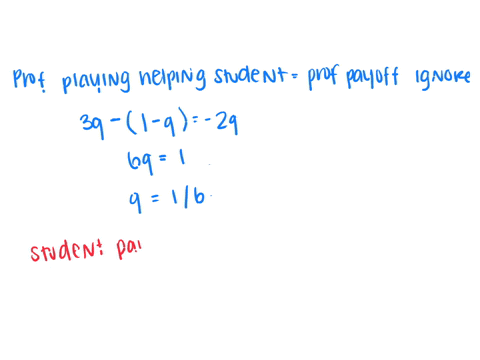 Prof playing helping student = prof payoff ignore
3q - (1-q) = -2q
6q = 1
q = 1/6
student pa